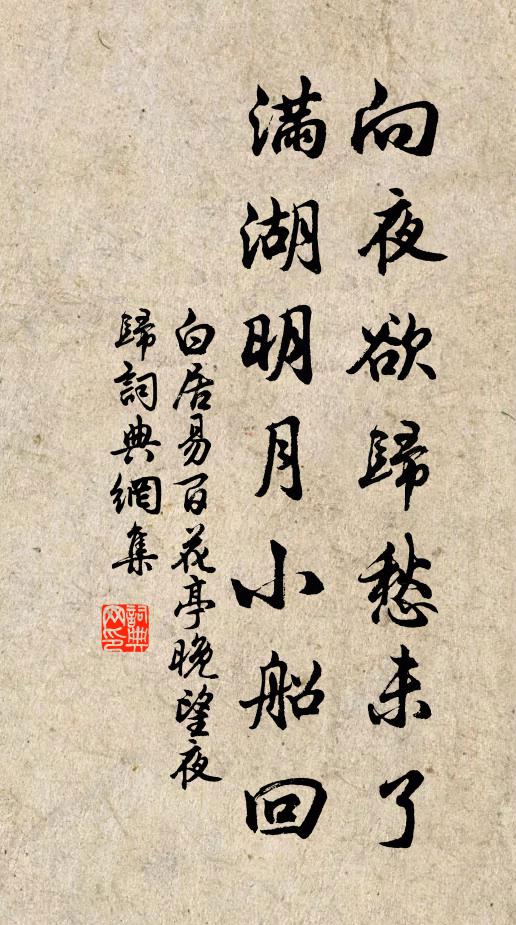 向夜欲歸愁未了
滿湖明月小船回
白居易百花亭晚望夜
歸詞典網集
詞典網印